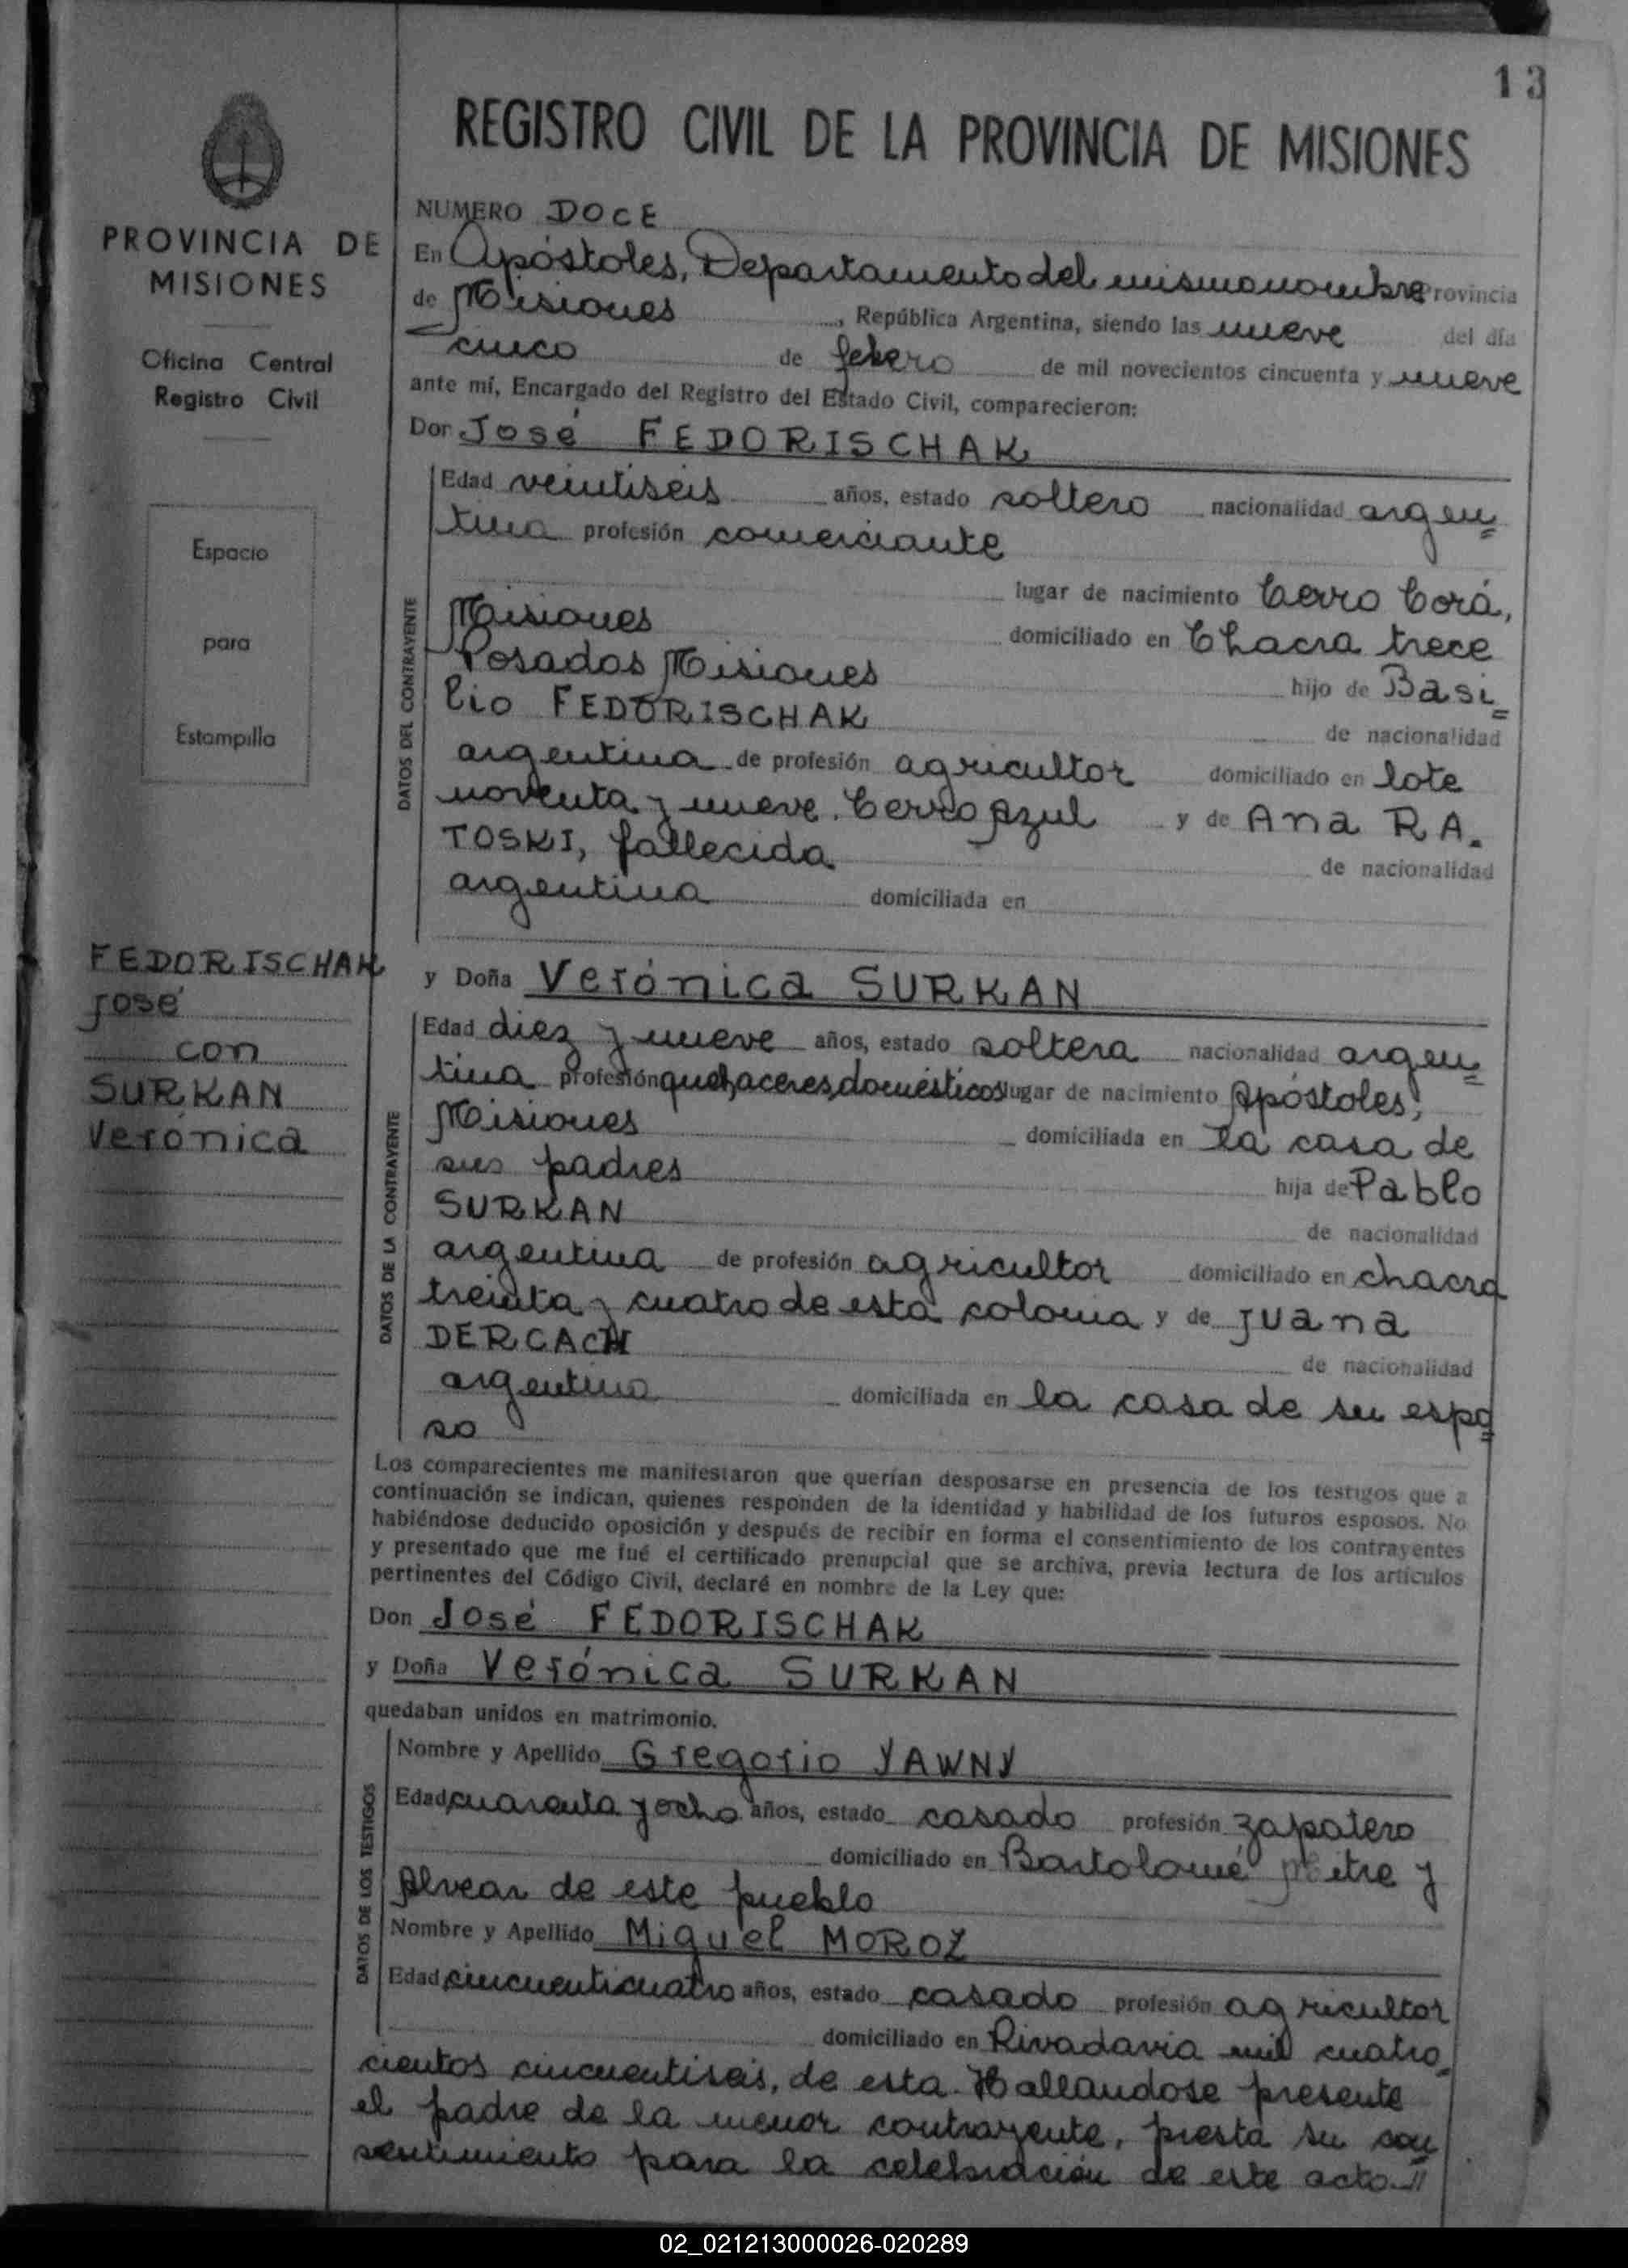 13
REGISTRO CIVIL DE LA PROVINCIA DE MISIONES
PROVINCIA DE
MISIONES
Oficina Central
Registro Civil
Espacio
para
Estampilla
FEDORISCHAK
José
con
SURKAN
Verónica
NUMERO DOCE
En Apóstoles, Departamento del mismo nombre Provincia
de Misiones, República Argentina, siendo las nueve del día
cinco de febero de mil novecientos cincuenta y nueve
ante mí, Encargado del Registro del Estado Civil, comparecieron:
Don José FEDORISCHAK
DATOS DEL CONTRAYENTE
Edad veintiseis años, estado soltero nacionalidad argen=
tina profesión comerciante
lugar de nacimiento Cerro Corá,
Misiones domiciliado en Chacra trece
Posadas Misiones hijo de Basi=
lio FEDORISCHAK de nacionalidad
argentina de profesión agricultor domiciliado en lote
noventa y nueve. Cerro Azul y de Ana RA.
TOSKI, fallecida de nacionalidad
argentina domiciliada en
y Doña Verónica SURKAN
DATOS DE LA CONTRAYENTE
Edad diez y nueve años, estado soltera nacionalidad argen=
tina profesión quehaceres domésticos lugar de nacimiento Apóstoles,
Misiones domiciliada en la casa de
sus padres hija de Pablo
SURKAN de nacionalidad
argentina de profesión agricultor domiciliado en chacra
treinta y cuatro de esta colonia y de Juana
DERCACH de nacionalidad
argentina domiciliada en la casa de su espo=
so
Los comparecientes me manifestaron que querían desposarse en presencia de los testigos que a
continuación se indican, quienes responden de la identidad y habilidad de los futuros esposos. No
habiéndose deducido oposición y después de recibir en forma el consentimiento de los contrayentes
y presentado que me fué el certificado prenupcial que se archiva, previa lectura de los artículos
pertinentes del Código Civil, declaré en nombre de la Ley que:
Don José FEDORISCHAK
y Doña Verónica SURKAN
quedaban unidos en matrimonio.
DATOS DE LOS TESTIGOS
Nombre y Apellido Gregorio YAWNY
Edad cuarenta y ocho años, estado casado profesión zapatero
domiciliado en Bartolomé Mitre y
Alvear de este pueblo
Nombre y Apellido Miguel MOROZ
Edad cincuenticuatro años, estado casado profesión agricultor
domiciliado en Rivadavia mil cuatro=
cientos cincuentiseis, de esta. Hallandose presente
el padre de la menor contrayente, presta su con
sentimiento para la celebración de este acto.=//
02_021213000026-020289